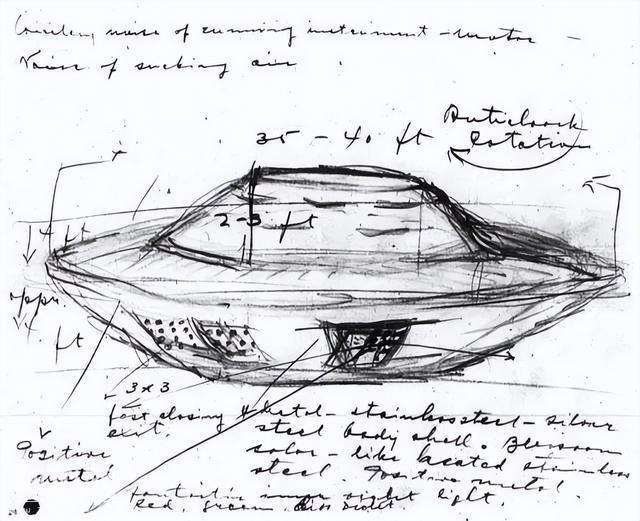 noise of running instrument - motor -
Noise of sucking air
Anticlock
Rotation
35 - 40 ft
2-3 ft
4 ft
appr.
4 ft
3 x 3
fast closing
exit.
Metal - stainless steel - silver
steel body shell.
color - like heated stainless
steel. Positive metal.
Positive
inner violet light.
Red, green, violet.